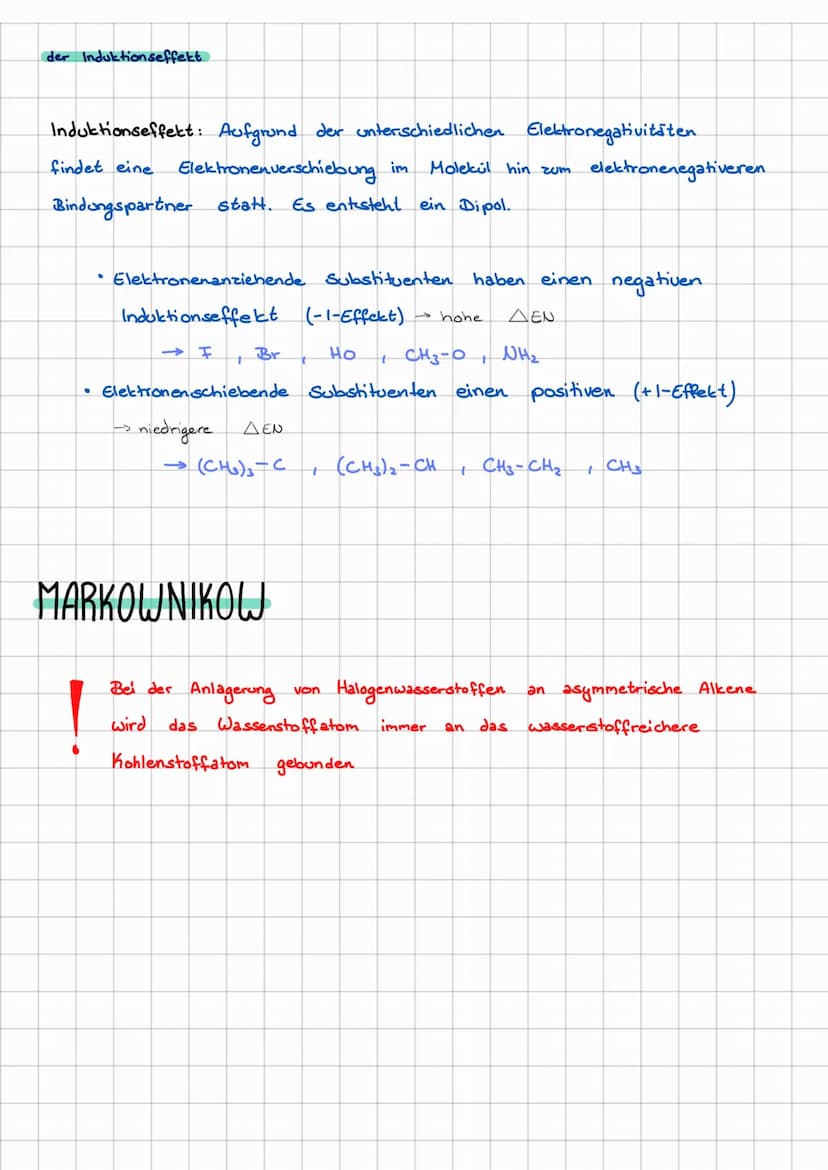 der Induktionseffekt
Induktionseffekt: Aufgrund der unterschiedlichen Elektronegativitäten
findet eine Elektronenverschiebung im Molekül hin zum elektronenegativeren
Bindungspartner statt. Es entsteht ein Dipol.
• Elektronenanziehende Substituenten haben einen negativen
Induktionseffekt (-I-Effekt) → hohe △EN
→ I , Br , HO , CH₃-O , NH₂
• Elektronenschiebende Substituenten einen positiven (+I-Effekt)
→ niedrigere △EN
→ (CH₃)₃-C , (CH₃)₂-CH , CH₃-CH₂ , CH₃
MARKOWNIKOW
! Bei der Anlagerung von Halogenwasserstoffen an asymmetrische Alkene
wird das Wassenstoffatom immer an das wasserstoffreichere
Kohlenstoffatom gebunden